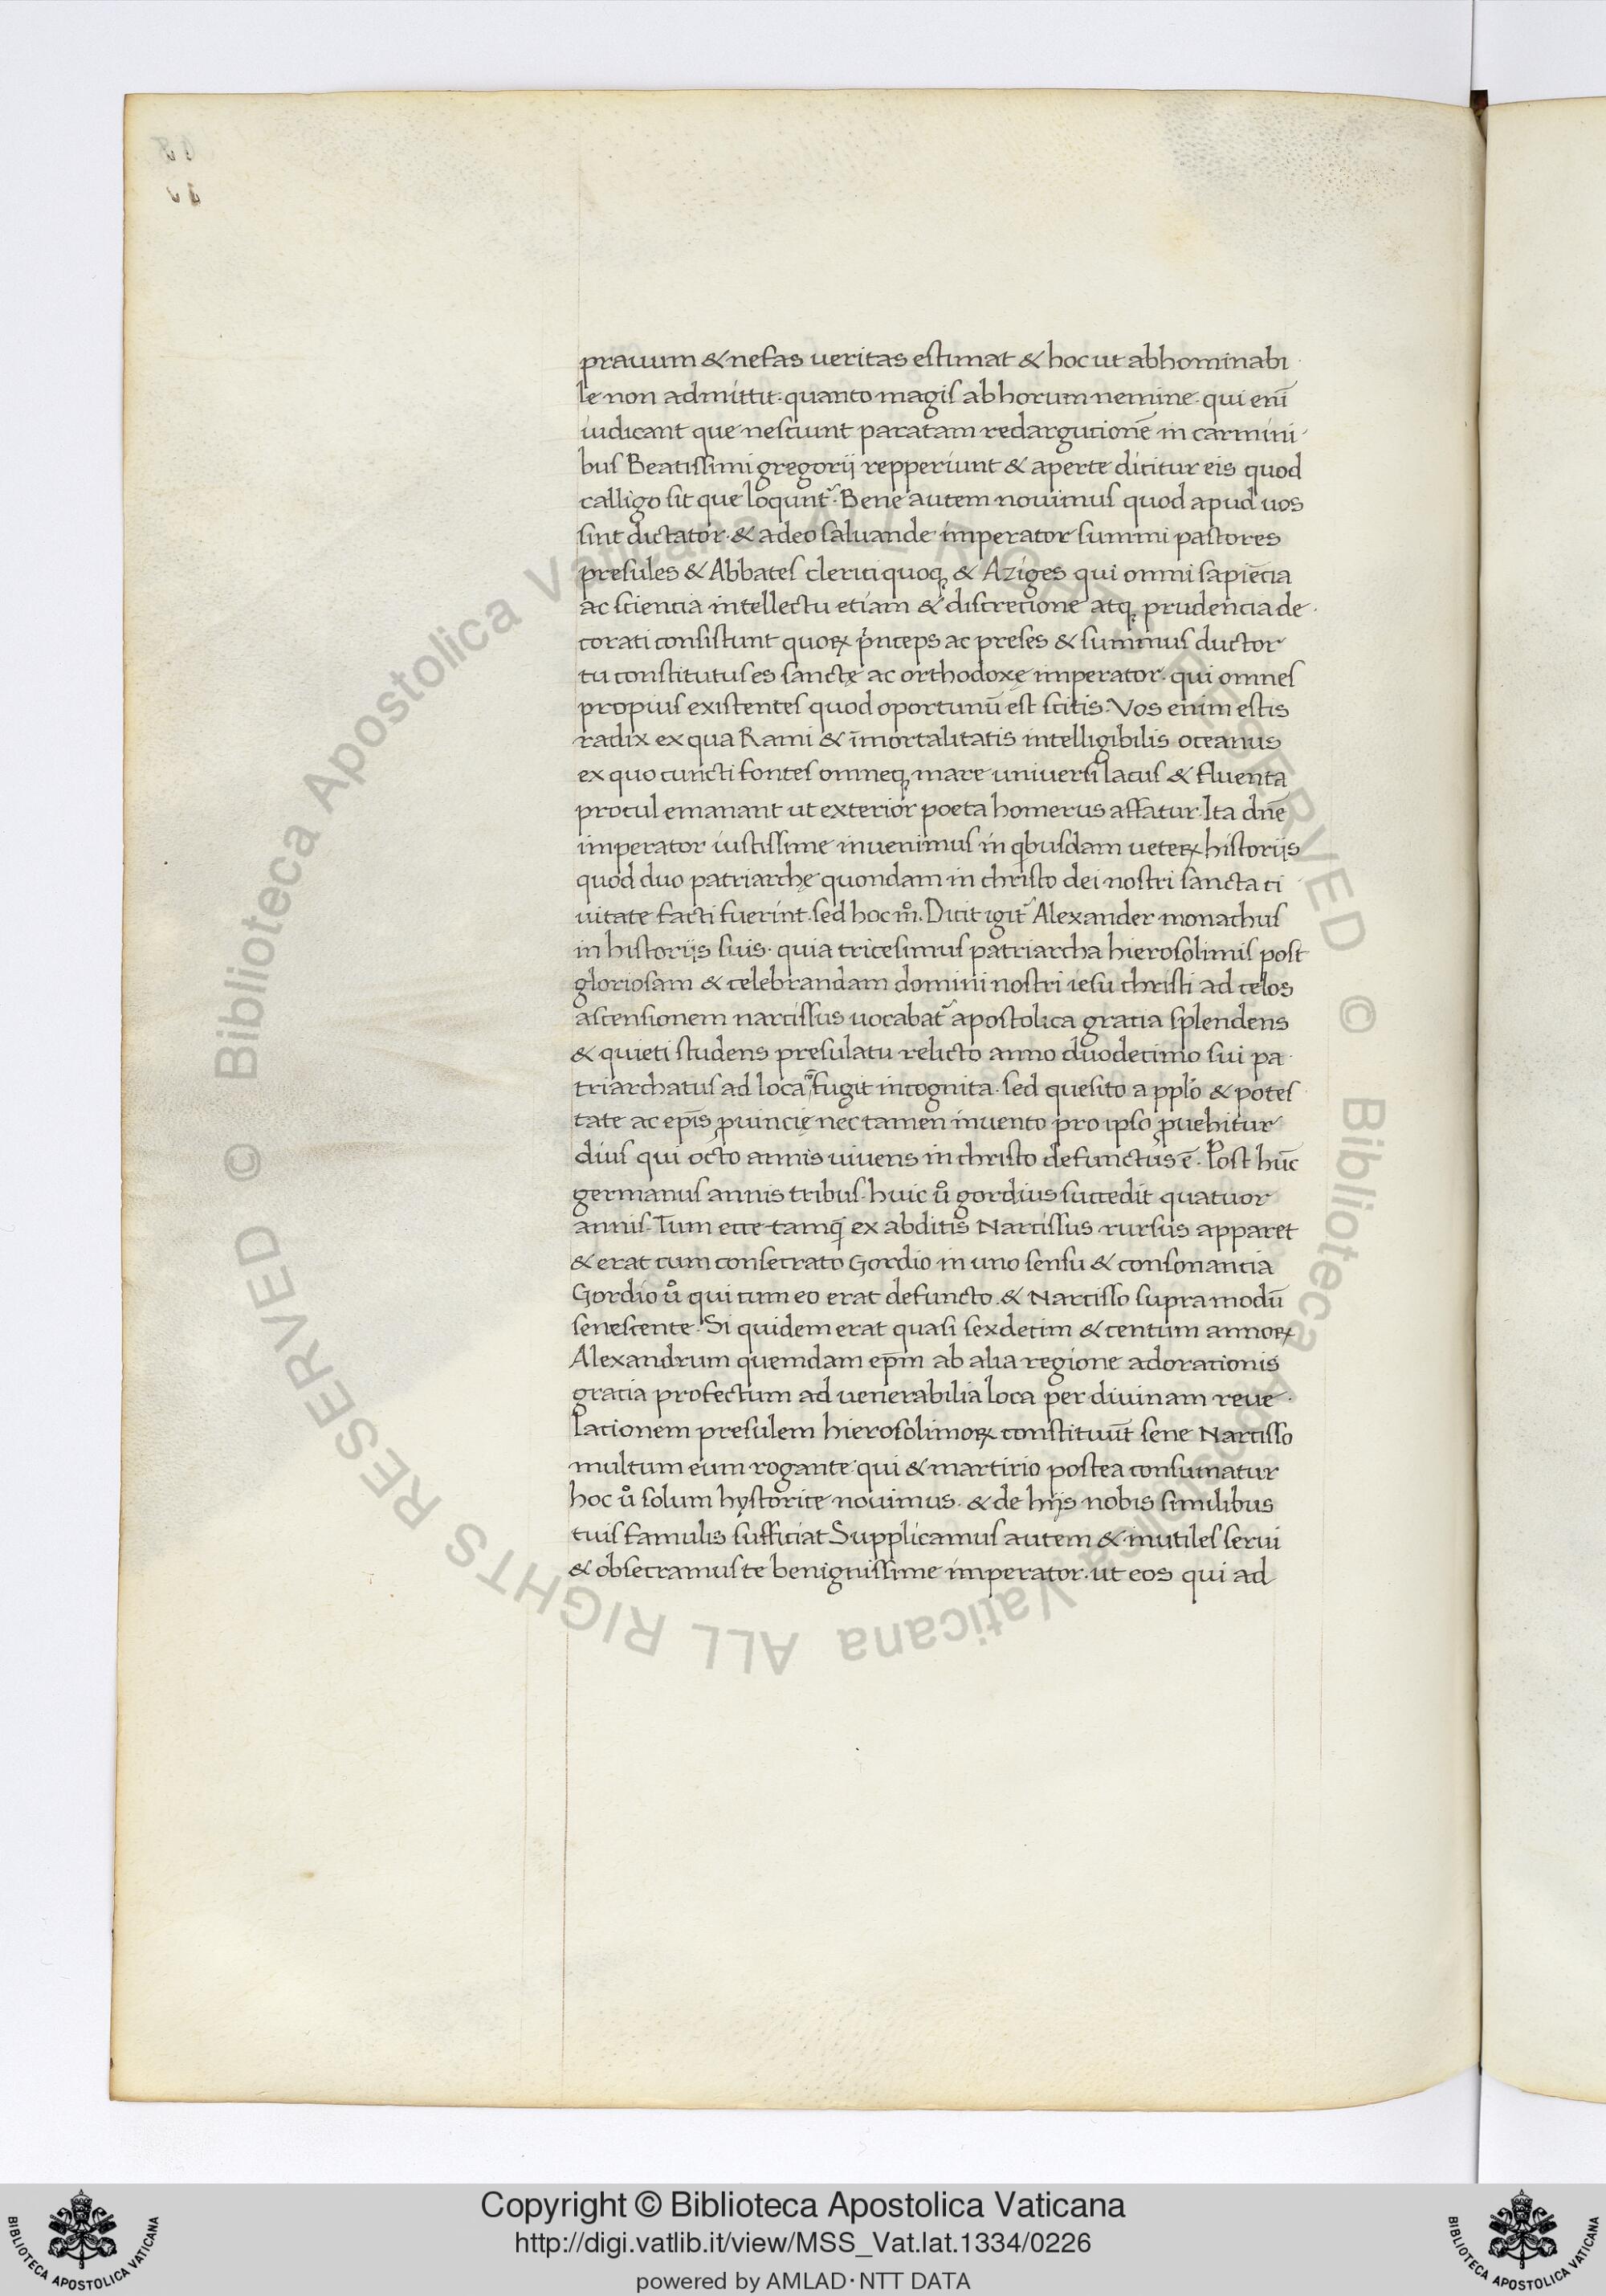 prauum & nefas ueritas estimat & hoc ut abhominabi
le non admittit. quanto magis ab horum nemine. qui enī
iudicant que nesciunt paratam redargutionē in carmini
bus Beatissimi gregorij repperiunt & aperte dicitur eis quod
calligo sit que loqunt᷑. Bene autem nouimus quod apud uos
sint dictator. & a deo saluande imperator summi pastores
presules & Abbates clerici quoqꝫ & Aziges qui omni sapiēcia
ac sciencia intellectu etiam & discrecione atqꝫ prudencia de
corati consistunt quoꝝ p̓nceps ac preses & summus ductor
tu constitutus es sanctę ac orthodoxę imperator. qui omnes
propius existentes quod oportunū est scitis. Vos enim estis
radix ex qua Rami & īmortalitatis intelligibilis oceanus
ex quo cuncti fontes omneqꝫ mare uniuersi lacus & fluenta
procul emanant ut exterior poeta homerus affatur. Ita dn̄e
imperator iustissime inuenimus in qbusdam ueteꝝ historijs
quod duo patriarchę quondam in christo dei nostri sancta ci
uitate facti fuerint. sed hoc m̊. Dicit igit᷑ Alexander monachus
in historijs suis. quia tricesimus patriarcha hierosolimis post
gloriosam & celebrandam domini nostri iesu christi ad cęlos
ascensionem narcissus uocabat᷑ apostolica gratia splendens
& quieti studens presulatu relicto anno duodecimo sui pa
triarchatus ad loca fugit incognita. sed quesito a pplo & potes
tate ac epīs ꝓuincię nec tamen inuento pro ipso ꝓuehitur
dius qui octo annis uiuens in christo defunctus ē. Post hūc
germanus annis tribus. huic ů gordius succedit quatuor
annis. Tum ecce tamq̄ ex abditis Narcissus rursus apparet
& erat cum consecrato Gordio in uno sensu & consonancia
Gordio ů qui cum eo erat defuncto. & Narcisso supra modū
senescente. Si quidem erat quasi sexdecim & centum annoꝝ
Alexandrum quemdam ep̄m ab alia regione adorationis
gracia profectum ad uenerabilia loca per diuinam reue
lacionem presulem hierosolimoꝝ constituūt sene Narcisso
multum eum rogante. qui & martirio postea consumatur
hoc ů solum hystorice nouimus. & de hijs nobis similibus
tuis famulis sufficiat Supplicamus autem & inutiles serui
& obsecramus te benignissime imperator. ut eos qui ad
Copyright © Biblioteca Apostolica Vaticana
http://digi.vatlib.it/view/MSS_Vat.lat.1334/0226
powered by AMLAD·NTT DATA
© Biblioteca Apostolica Vaticana ALL RIGHTS RESERVED
© Biblioteca Apostolica Vaticana ALL RIGHTS RESERVED
BIBLIOTECA APOSTOLICA VATICANA
BIBLIOTECA APOSTOLICA VATICANA